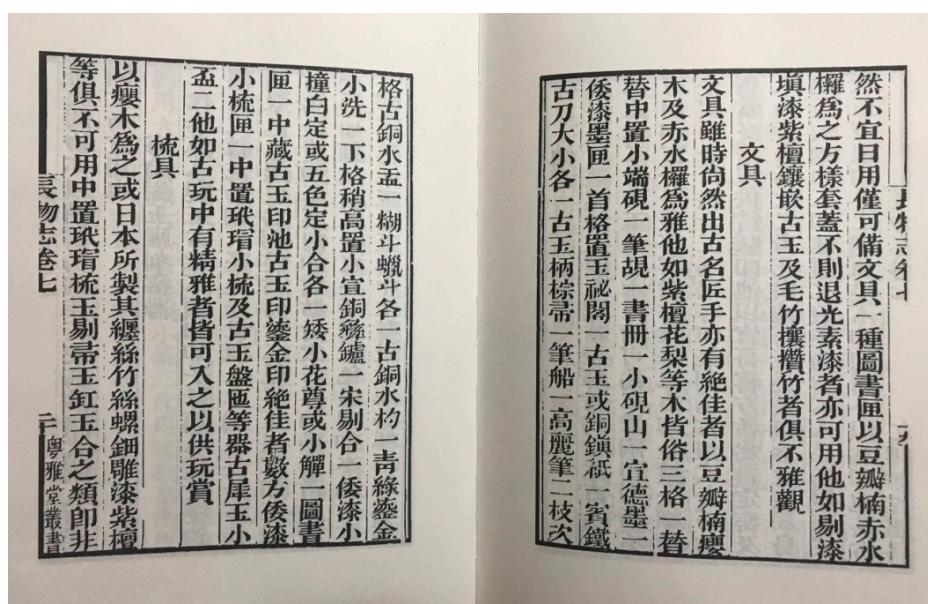 長物志卷七
然不宜日用僅可備文具一種圖書匣以豆瓣楠赤水
欏爲之方樣套蓋不則退光素漆者亦可用他如剔漆
塡漆紫檀鑲嵌古玉及毛竹攘攢竹者俱不雅觀
文具
文具雖時尚然出古名匠手亦有絶佳者以豆瓣楠癭
木及赤水欏爲雅他如紫檀花梨等木皆俗三格一替
替中置小端硯一筆覘一書冊一小硯山一宣德墨一
倭漆墨匣一首格置玉祕閣一古玉或銅鎭紙一賓鐵
古刀大小各一古玉柄棕帚一筆船一高麗筆二枝次
格古銅水盂一糊斗蠟斗各一古銅水杓一靑綠鎏金
小洗一下格稍高置小宣銅彝鑪一宋剔合一倭漆小
撞白定或五色定小合各一矮小花尊或小觶一圖書
匣一中藏古玉印池古玉印鎏金印絶佳者數方倭漆
小梳匣一中置玳瑁小梳及古玉盤匜等器古犀玉小
盃二他如古玩中有精雅者皆可入之以供玩賞
梳具
以癭木爲之或日本所製其纏絲竹絲螺鈿雕漆紫檀
等俱不可用中置玳瑁梳玉剔帚玉缸玉合之類卽非
長物志卷七
粵雅堂叢書